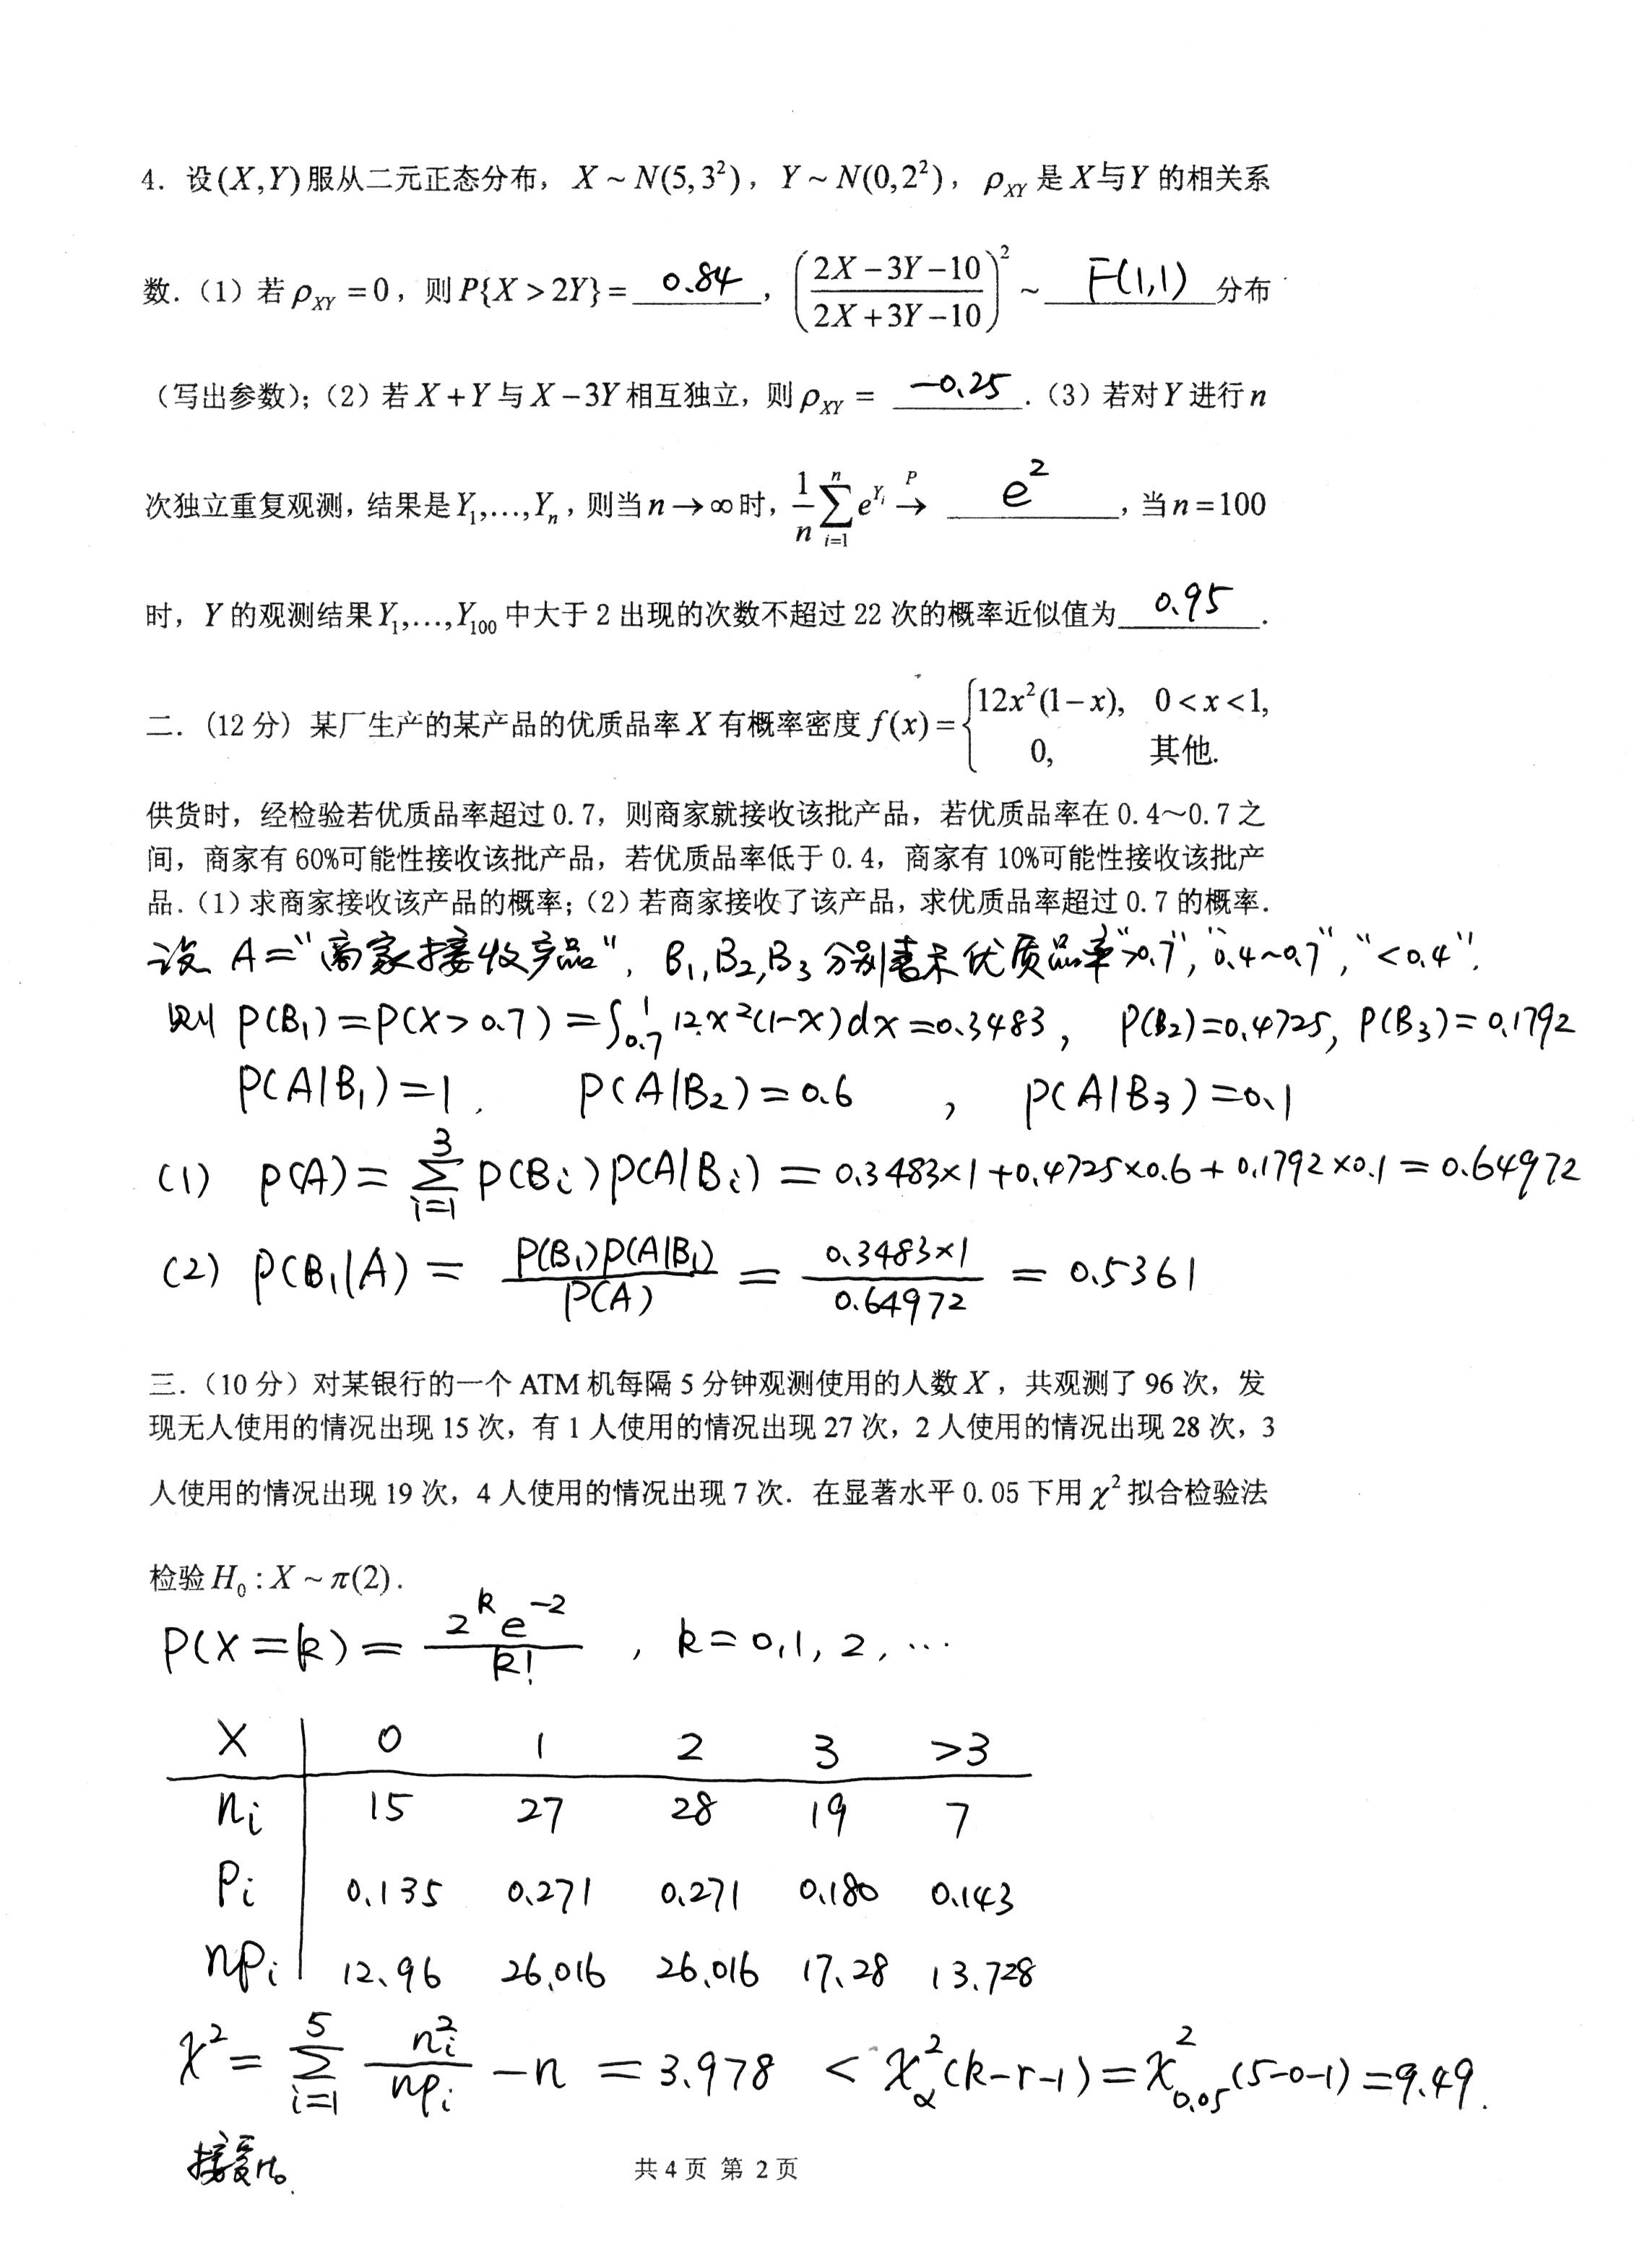 4. 设(X,Y)服从二元正态分布, X ~ N(5,3²), Y ~ N(0,2²), ρ_XY 是X与Y 的相关系
数.(1) 若ρ_XY = 0, 则P{X > 2Y} = 0.84, ((2X−3Y−10)/(2X+3Y−10))² ~ F(1,1) 分布
(写出参数);(2) 若X+Y与X−3Y相互独立, 则ρ_XY = −0.25.(3) 若对Y进行n
次独立重复观测, 结果是Y₁,…,Yₙ, 则当n→∞时, 1/n ∑_{i=1}^{n} e^{Y_i} →^P e², 当n=100
时, Y的观测结果Y₁,…,Y₁₀₀中大于2出现的次数不超过22次的概率近似值为 0.95.
二. (12分) 某厂生产的某产品的优质品率X有概率密度 f(x) = { 12x²(1−x), 0<x<1, 0, 其他.
供货时, 经检验若优质品率超过0.7, 则商家就接收该批产品, 若优质品率在0.4~0.7之
间, 商家有60%可能性接收该批产品, 若优质品率低于0.4, 商家有10%可能性接收该批产
品.(1)求商家接收该产品的概率;(2)若商家接收了该产品, 求优质品率超过0.7的概率.
设 A="商家接收产品", B₁,B₂,B₃分别表示优质品率">0.7","0.4~0.7","<0.4".
则 P(B₁)=P(X>0.7)=∫_{0.7}^{1} 12x²(1-x)dx=0.3483, P(B₂)=0.4725, P(B₃)=0.1792
P(A|B₁)=1, P(A|B₂)=0.6, P(A|B₃)=0.1
(1) P(A)= ∑_{i=1}^{3} P(Bᵢ)P(A|Bᵢ) = 0.3483×1+0.4725×0.6+0.1792×0.1=0.64972
(2) P(B₁|A) = P(B₁)P(A|B₁)/P(A) = 0.3483×1/0.64972 = 0.5361
三.(10分)对某银行的一个ATM机每隔5分钟观测使用的人数X, 共观测了96次, 发
现无人使用的情况出现15次, 有1人使用的情况出现27次, 2人使用的情况出现28次, 3
人使用的情况出现19次, 4人使用的情况出现7次. 在显著水平0.05下用χ²拟合检验法
检验H₀:X~π(2).
P(X=k)= 2^k e^{-2}/k!, k=0,1,2,…
X 0 1 2 3 >3
nᵢ 15 27 28 19 7
Pᵢ 0.135 0.271 0.271 0.180 0.143
npᵢ 12.96 26.016 26.016 17.28 13.728
χ²= ∑_{i=1}^{5} nᵢ²/npᵢ −n = 3.978 < χ²_α(k-r-1)=χ²_{0.05}(5-0-1)=9.49.
接受H₀.
共4页 第2页